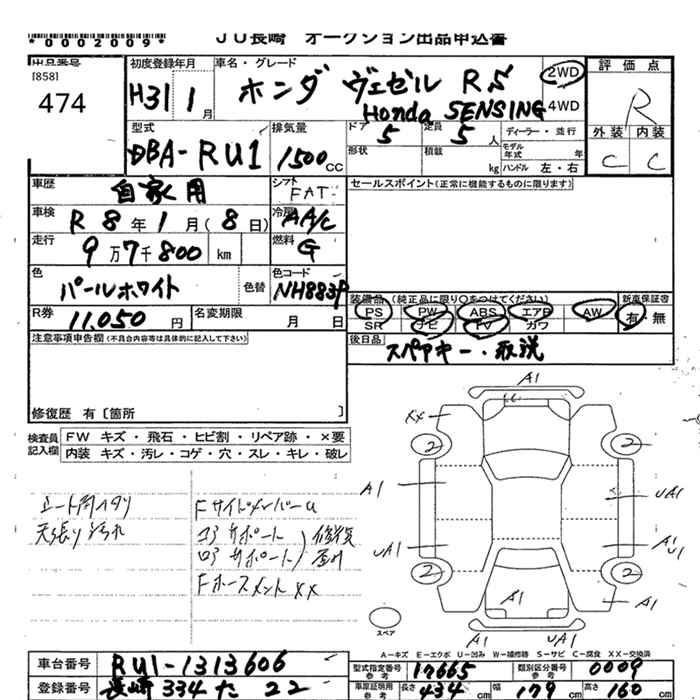 *0002009*
JU長崎 オークション出品申込書
出品番号
[858]
474
初度登録年月
H31 1月
車名・グレード
ホンダ ヴェゼル RS
Honda SENSING
2WD
4WD
評価点
R
外装 内装
C C
型式
DBA-RU1
排気量
1500 CC
ドア 5
定員 5 人
形状
積載 kg
ディーラー・並行
モデル年式 年
ハンドル 左・右
車歴
自家用
シフト
FAT
セールスポイント(正常に機能するものに限ります)
車検
R 8年 1月(8日)
冷房
AA/C
走行
9万7千800 km
燃料
G
色
パールホワイト
色替
色コード
NH883P
R券
11.050 円
名変期限
月 日
装備品 (純正品に限り○をつけてください)
PS PW ABS エアB AW
SR ナビ TV カワ
新車保証書
有・無
後日品
スペアキー・取説
注意事項申告欄(不具合内容等は具体的に記入して下さい)
修復歴 有[箇所 ]
検査員記入欄
FW キズ・飛石・ヒビ割・リペア跡・×要
内装 キズ・汚レ・コゲ・穴・スレ・キレ・破レ
天張り汚れ
FサイドメンバーU
コアサポート
ロアサポート
修復
A1
XX
2
2
A1
UA1
UA1
A1
U1
UA1
2
2
A1
A1
A1
A1
UA1
スペア
A-キズ E-エクボ U-凹み W-補修跡 S-サビ C-腐食 XX-交換済
車台番号
RU1-1313606
登録番号
長崎 334 た 22
型式指定番号
参考
17665
類別区分番号
参考
0009
車庫証明用
参考
長さ 434 cm
幅 179 cm
高さ 160 cm